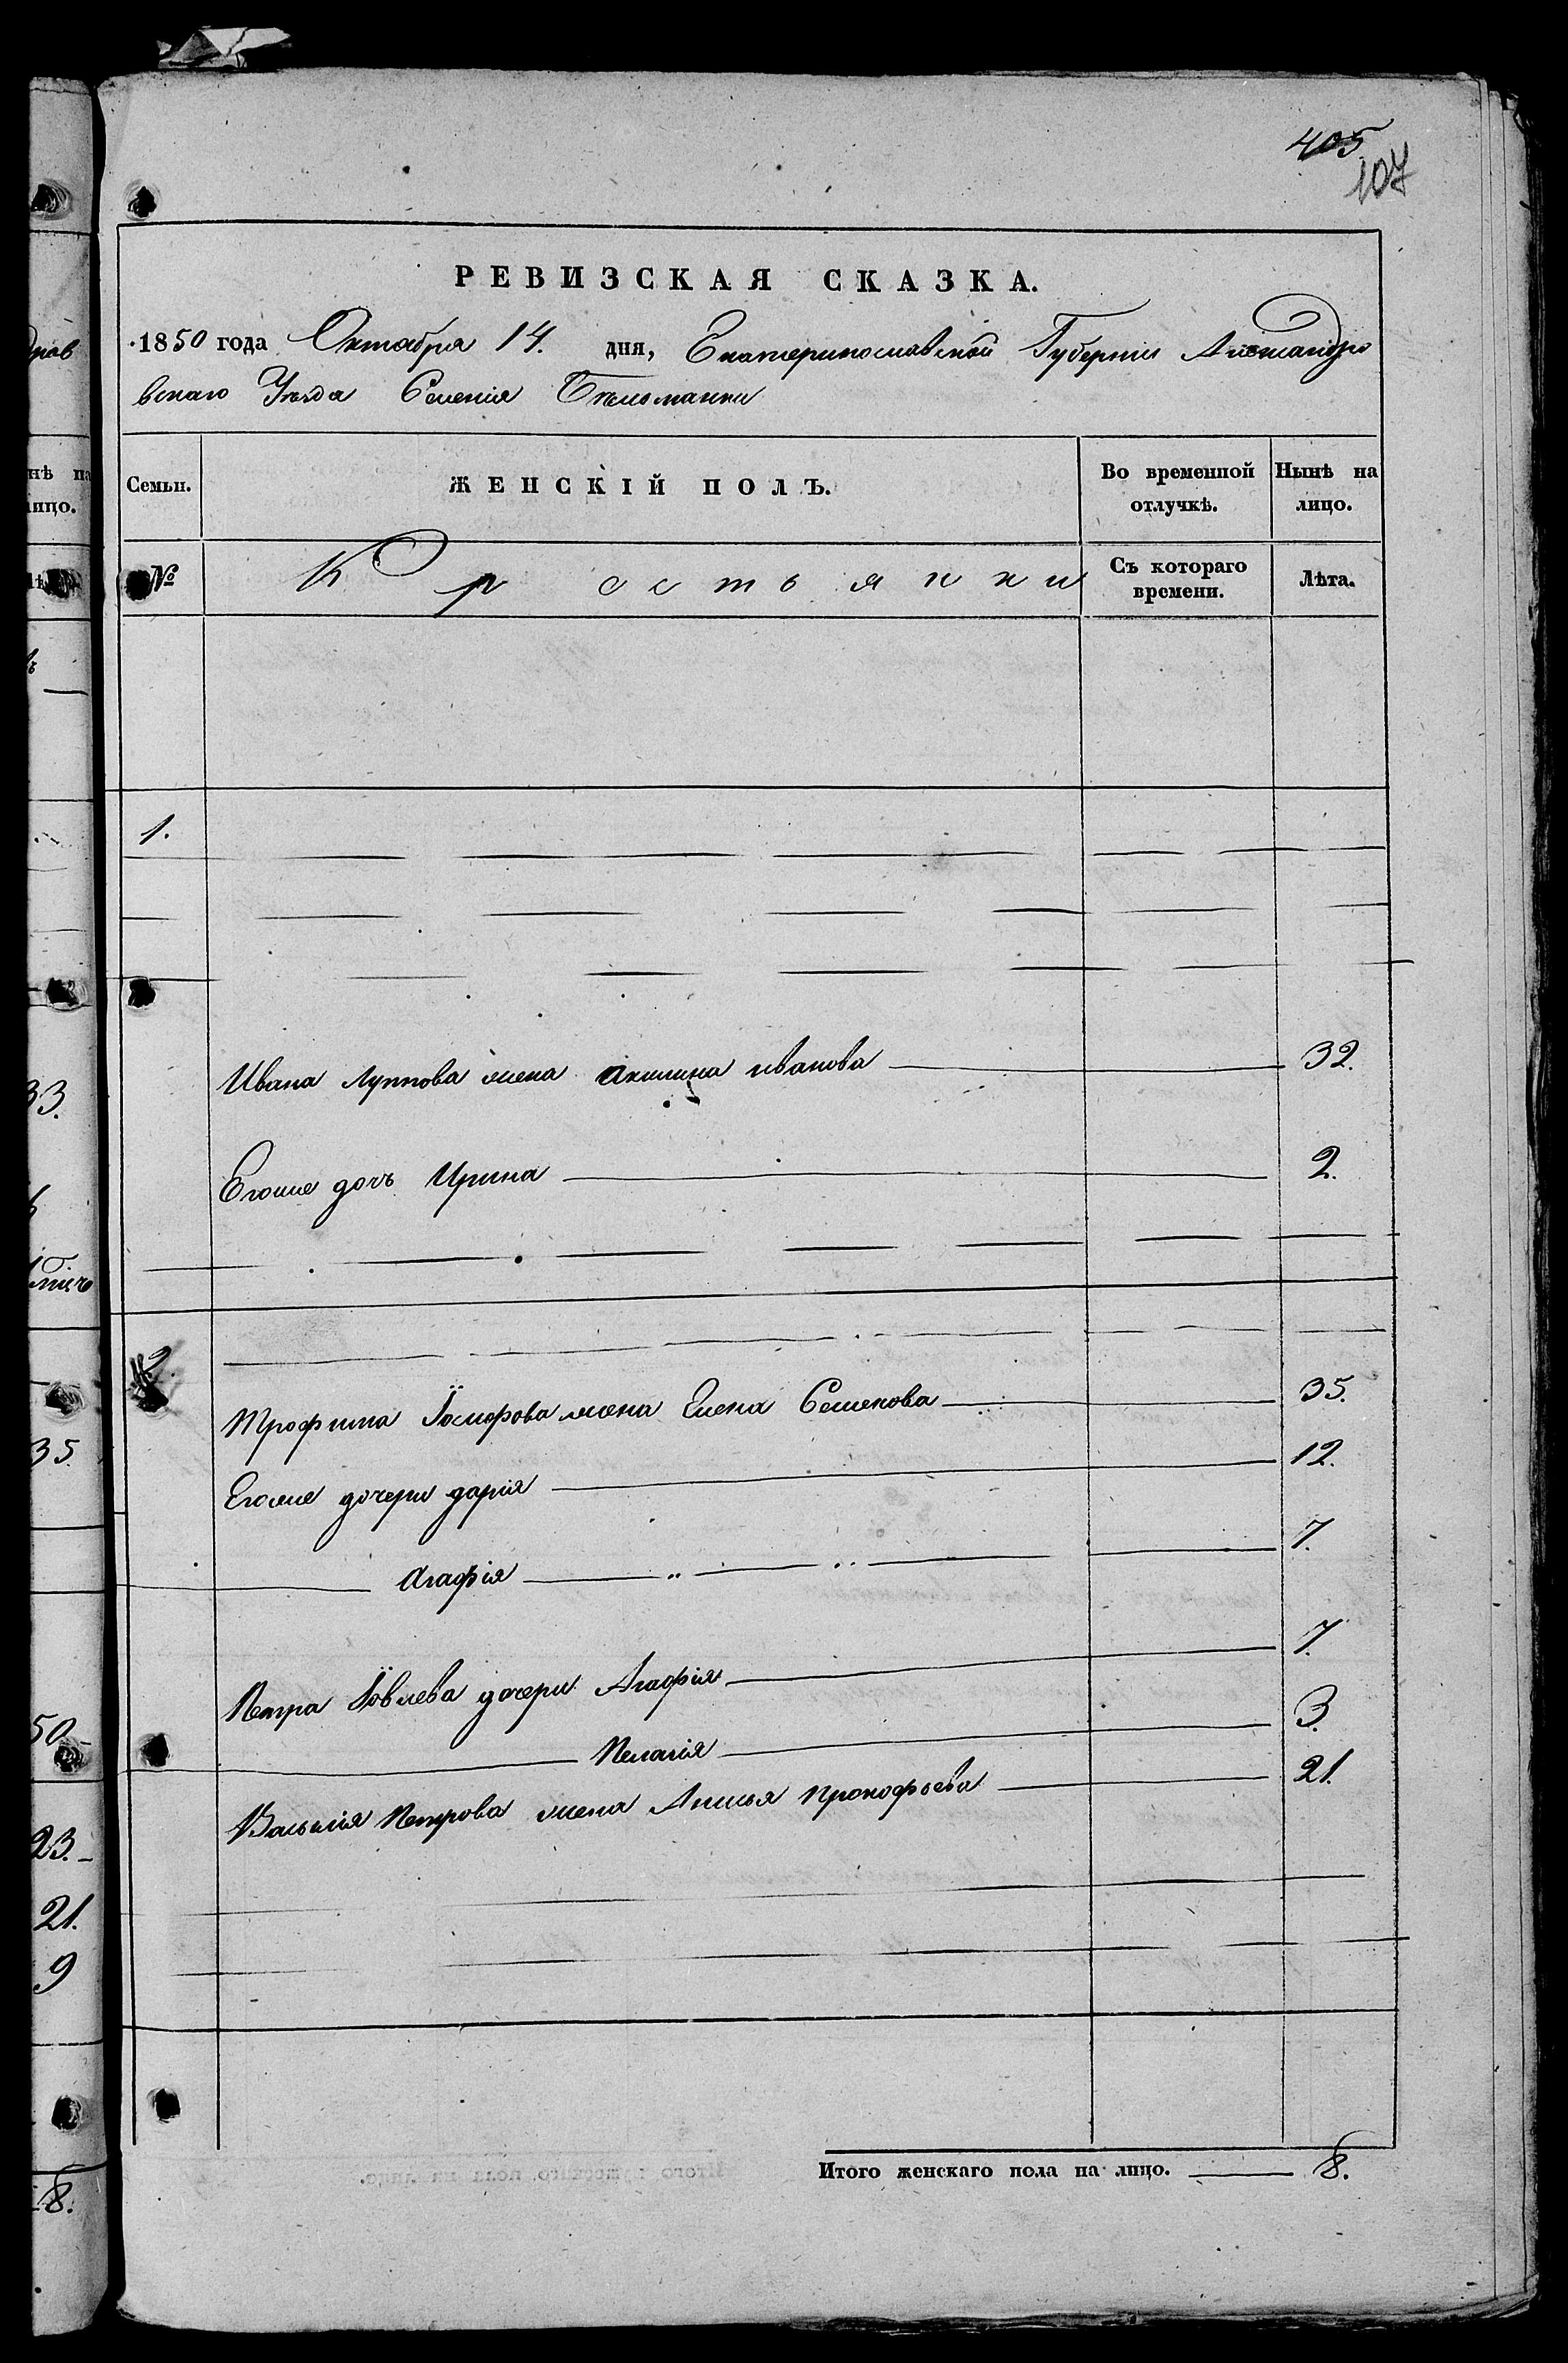 405
107
РЕВИЗСКАЯ СКАЗКА.
1850 года Октября 14. дня, Екатеринославской Губерніи Александро
вскаго Уѣзда Селенія Бѣломанки
Семьи. ЖЕНСКІЙ ПОЛЪ. Во временной отлучкѣ. Нынѣ на лицо.
№ Крестьянки Съ котораго времени. Лѣта.
1.
Ивана Луппова жена Акилина иванова 32.
Егоже дочь Ирина 2.
2.
Трофима жена Елена Семенова 35.
Егоже дочери дарія 12.
Агафія 7.
Петра Іовлева дочери Агафія 7.
Пелагія 3.
Василія Петрова жена Анисья прокофьева 21.
Итого женскаго пола на лицо. 8.
33.
35.
50
23.
21.
9
8.